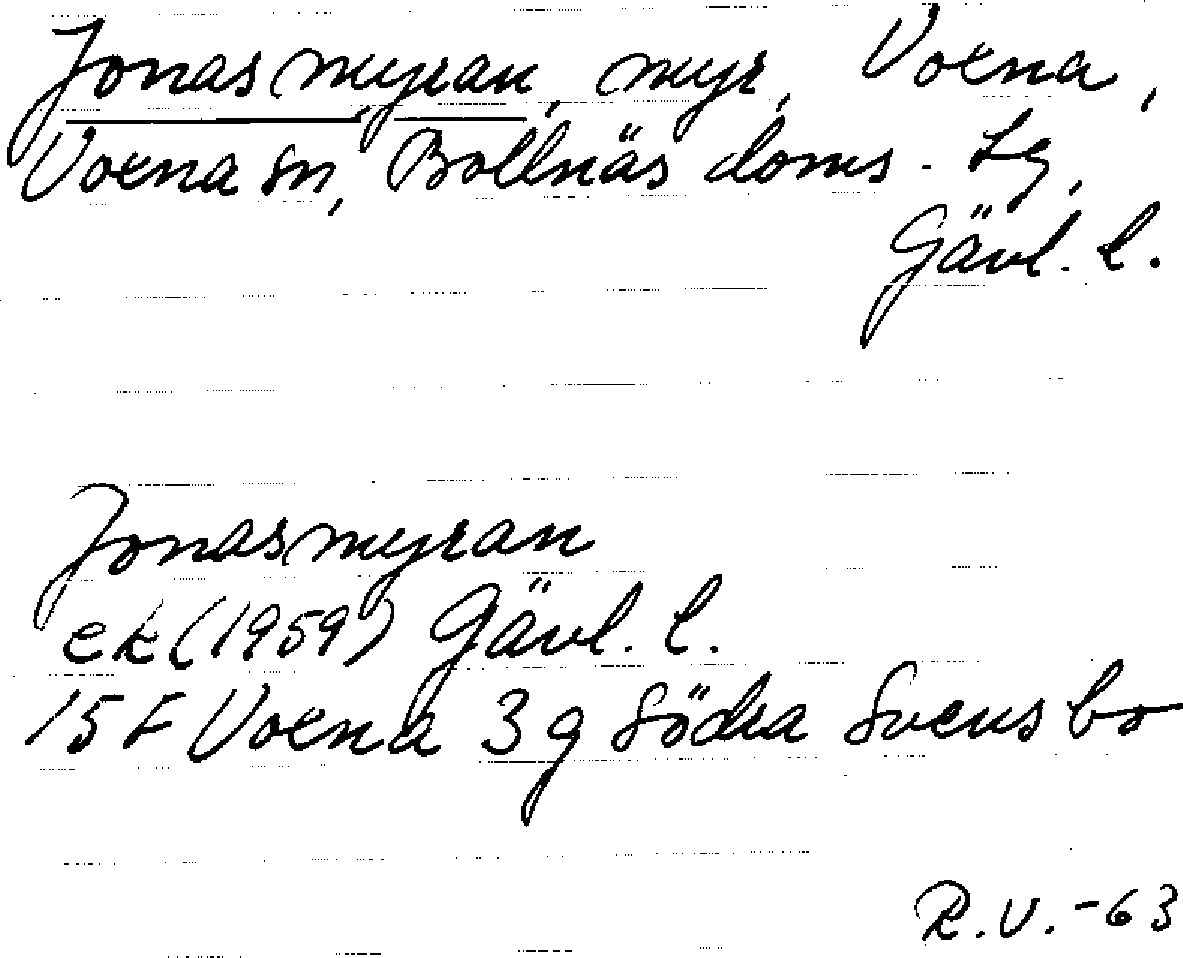 Jonasmyran, myr, Voxna,
Voxna sn, Bollnäs doms. Lg,
Gävl. l.
Jonasmyran
ek (1959) Gävl. l.
15F Voxna 3g Södra Svensbo
R.V.-63